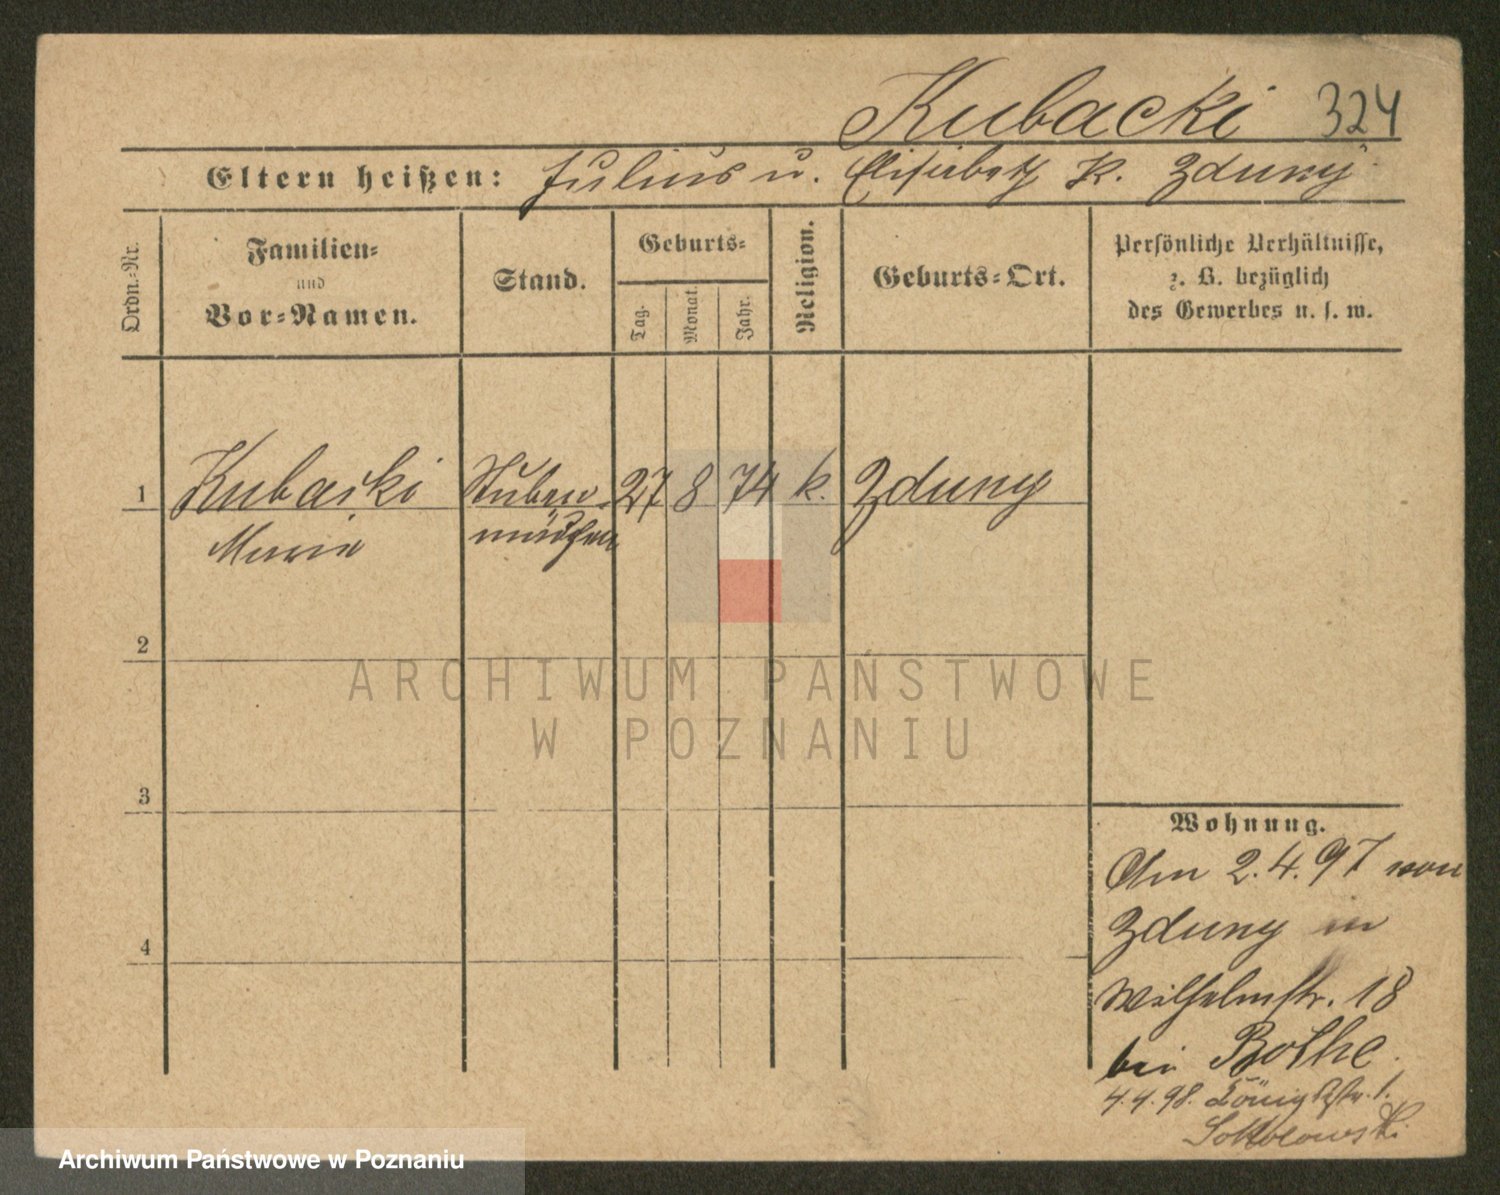 Kubacki 324
Eltern heißen: Julius u. Elisabeth K. Zduny
Ordn.=Nr.
Familien=
und
Vor=Namen.
Stand.
Geburts=
Tag.
Monat.
Jahr.
Religion.
Geburts=Ort.
Persönliche Verhältnisse,
z. B. bezüglich
des Gewerbes u. s. w.
1 Kubacki Stuben= 27 8 74 k. Zduny
Marie mädchen
2
3
4
Wohnung.
Am 2.4.97 von
Zduny in
Wilhelmstr. 18
bei Bothe.
4.4.98. Königstr. 1.
Sokolowski
ARCHIWUM PAŃSTWOWE
W POZNANIU
Archiwum Państwowe w Poznaniu